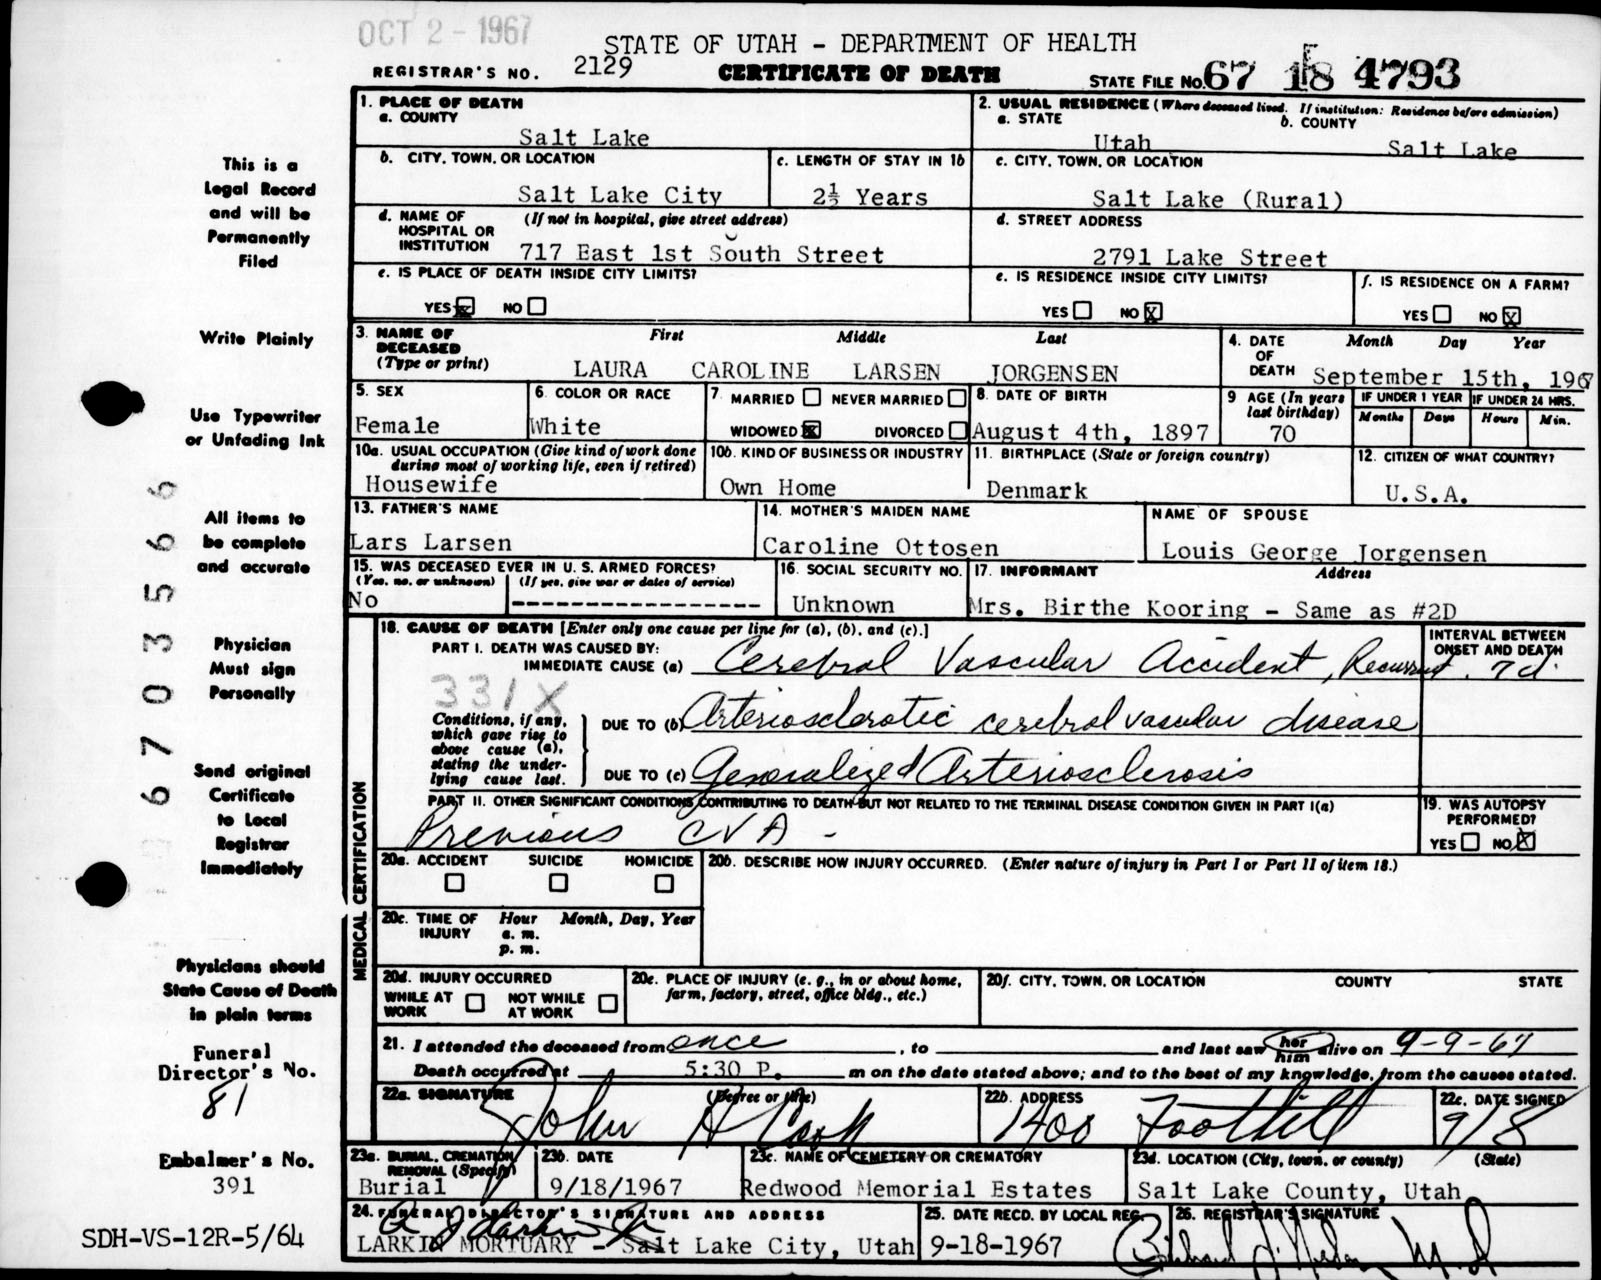 OCT 2 - 1967
STATE OF UTAH - DEPARTMENT OF HEALTH
REGISTRAR'S NO. 2129 CERTIFICATE OF DEATH STATE FILE NO. 67 18 4793
This is a
Legal Record
and will be
Permanently
Filed
Write Plainly
Use Typewriter
or Unfading Ink
All items to
be complete
and accurate
Physician
Must sign
Personally
Send original
Certificate
to Local
Registrar
Immediately
Physicians should
State Cause of Death
in plain terms
Funeral
Director's No.
81
Embalmer's No.
391
SDH-VS-12R-5/64
67 03566
1. PLACE OF DEATH
a. COUNTY
Salt Lake
2. USUAL RESIDENCE (Where deceased lived. If institution: Residence before admission)
a. STATE b. COUNTY
Utah Salt Lake
b. CITY, TOWN, OR LOCATION
Salt Lake City
c. LENGTH OF STAY IN 1b
2½ Years
c. CITY, TOWN, OR LOCATION
Salt Lake (Rural)
d. NAME OF (If not in hospital, give street address)
HOSPITAL OR
INSTITUTION
717 East 1st South Street
d. STREET ADDRESS
2791 Lake Street
e. IS PLACE OF DEATH INSIDE CITY LIMITS?
YES X NO
e. IS RESIDENCE INSIDE CITY LIMITS?
YES NO X
f. IS RESIDENCE ON A FARM?
YES NO X
3. NAME OF First Middle Last
DECEASED
(Type or print)
LAURA CAROLINE LARSEN JORGENSEN
4. DATE Month Day Year
OF
DEATH
September 15th, 1967
5. SEX
Female
6. COLOR OR RACE
White
7. MARRIED NEVER MARRIED
WIDOWED X DIVORCED
8. DATE OF BIRTH
August 4th, 1897
9 AGE (In years
last birthday)
70
IF UNDER 1 YEAR IF UNDER 24 HRS.
Months Days Hours Min.
10a. USUAL OCCUPATION (Give kind of work done
during most of working life, even if retired)
Housewife
10b. KIND OF BUSINESS OR INDUSTRY
Own Home
11. BIRTHPLACE (State or foreign country)
Denmark
12. CITIZEN OF WHAT COUNTRY?
U.S.A.
13. FATHER'S NAME
Lars Larsen
14. MOTHER'S MAIDEN NAME
Caroline Ottosen
NAME OF SPOUSE
Louis George Jorgensen
15. WAS DECEASED EVER IN U. S. ARMED FORCES?
(Yes, no, or unknown) (If yes, give war or dates of service)
No -------------------
16. SOCIAL SECURITY NO.
Unknown
17. INFORMANT Address
Mrs. Birthe Kooring - Same as #2D
MEDICAL CERTIFICATION
18. CAUSE OF DEATH [Enter only one cause per line for (a), (b), and (c).]
INTERVAL BETWEEN
ONSET AND DEATH
PART I. DEATH WAS CAUSED BY:
IMMEDIATE CAUSE (a) Cerebral Vascular Accident, Recurrent. 7d.
331X
Conditions, if any,
which gave rise to
above cause (a),
stating the under-
lying cause last.
DUE TO (b) Arteriosclerotic cerebral vascular disease
DUE TO (c) Generalized Arteriosclerosis
PART II. OTHER SIGNIFICANT CONDITIONS CONTRIBUTING TO DEATH BUT NOT RELATED TO THE TERMINAL DISEASE CONDITION GIVEN IN PART I(a)
Previous CVA -
19. WAS AUTOPSY
PERFORMED?
YES NO X
20a. ACCIDENT SUICIDE HOMICIDE
20b. DESCRIBE HOW INJURY OCCURRED. (Enter nature of injury in Part I or Part II of item 18.)
20c. TIME OF Hour Month, Day, Year
INJURY a. m.
p. m.
20d. INJURY OCCURRED
WHILE AT NOT WHILE
WORK AT WORK
20e. PLACE OF INJURY (e. g., in or about home,
farm, factory, street, office bldg., etc.)
20f. CITY, TOWN, OR LOCATION COUNTY STATE
21. I attended the deceased from once, to and last saw her him alive on 9-9-67
Death occurred at 5:30 P. m on the date stated above; and to the best of my knowledge, from the causes stated.
22a. SIGNATURE (Degree or title)
John H Cook
22b. ADDRESS
1400 Foothill
22c. DATE SIGNED
9/18
23a. BURIAL, CREMATION,
REMOVAL (Specify)
Burial
23b. DATE
9/18/1967
23c. NAME OF CEMETERY OR CREMATORY
Redwood Memorial Estates
23d. LOCATION (City, town, or county) (State)
Salt Lake County, Utah
24. FUNERAL DIRECTOR'S SIGNATURE AND ADDRESS
LARKIN MORTUARY - Salt Lake City, Utah
25. DATE RECD. BY LOCAL REG.
9-18-1967
26. REGISTRAR'S SIGNATURE